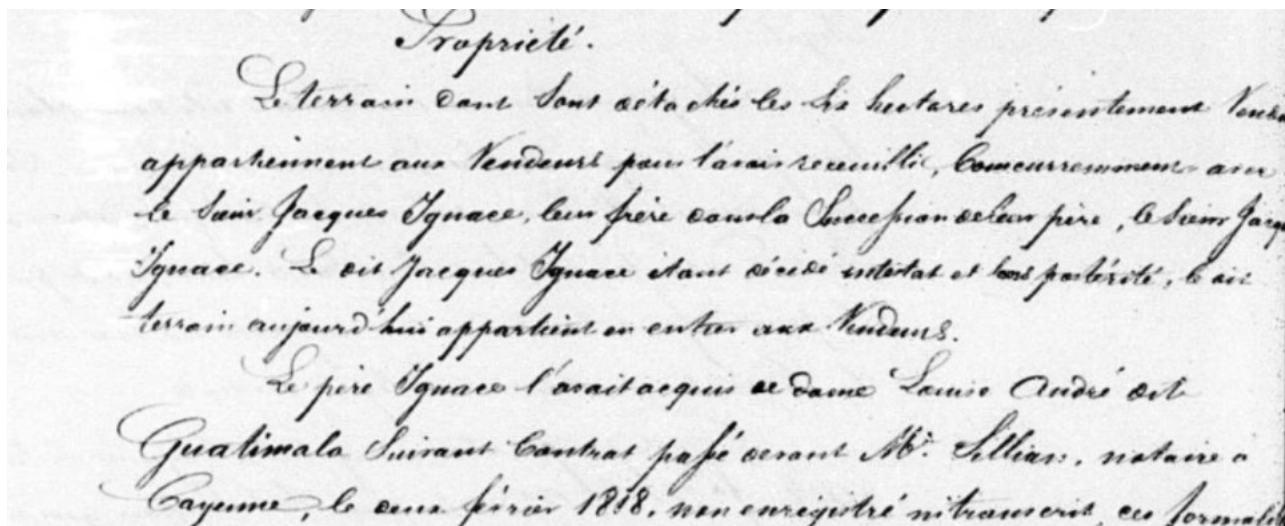 Propriété.
Le terrain dont sont détachés les six hectares présentement Vendu
appartiennent aux Vendeurs pour l'avoir receuillie, Concurremment avec
le Sieur Jacques Ignace, leur frère dans la Succession de leur père, le Sieur Jacques
Ignace. Le dit Jacques Ignace étant décédé intestat et sans postérité, le dit
terrain aujourd'hui appartient en entier aux Vendeurs.
Le père Ignace l'avait acquis de dame Louise André dit
Guatimala Suivant Contrat passé devant Me. notaire à
Cayenne, le deux février 1818, non enregistré ni transcrit, ces formalités